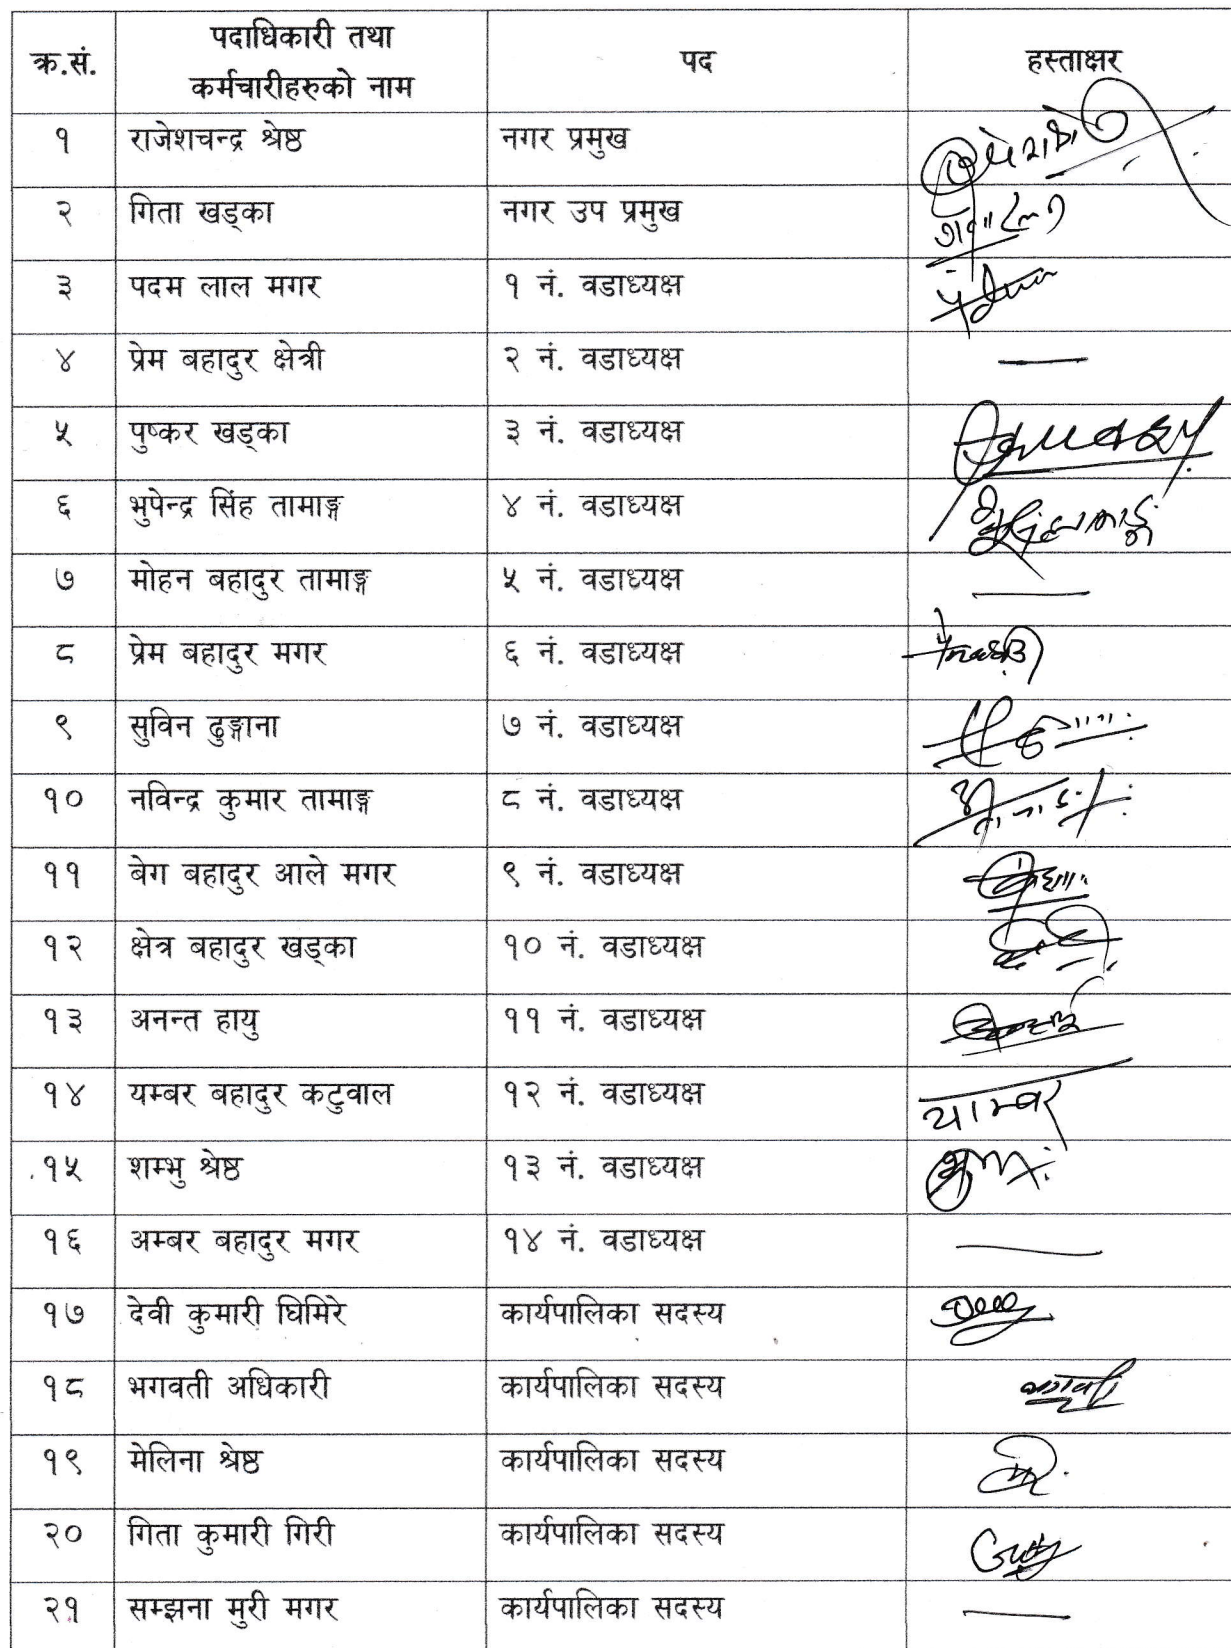 क्र.सं. पदाधिकारी तथा कर्मचारीहरुको नाम पद हस्ताक्षर
१ राजेशचन्द्र श्रेष्ठ नगर प्रमुख
२ गिता खड्का नगर उप प्रमुख
३ पदम लाल मगर १ नं. वडाध्यक्ष
४ प्रेम बहादुर क्षेत्री २ नं. वडाध्यक्ष —
५ पुष्कर खड्का ३ नं. वडाध्यक्ष
६ भुपेन्द्र सिंह तामाङ्ग ४ नं. वडाध्यक्ष
७ मोहन बहादुर तामाङ्ग ५ नं. वडाध्यक्ष —
८ प्रेम बहादुर मगर ६ नं. वडाध्यक्ष
९ सुविन ढुङ्गाना ७ नं. वडाध्यक्ष
१० नविन्द्र कुमार तामाङ्ग ८ नं. वडाध्यक्ष
११ बेग बहादुर आले मगर ९ नं. वडाध्यक्ष
१२ क्षेत्र बहादुर खड्का १० नं. वडाध्यक्ष
१३ अनन्त हायु ११ नं. वडाध्यक्ष
१४ यम्बर बहादुर कटुवाल १२ नं. वडाध्यक्ष याम्बर
१५ शम्भु श्रेष्ठ १३ नं. वडाध्यक्ष
१६ अम्बर बहादुर मगर १४ नं. वडाध्यक्ष —
१७ देवी कुमारी घिमिरे कार्यपालिका सदस्य
१८ भगवती अधिकारी कार्यपालिका सदस्य
१९ मेलिना श्रेष्ठ कार्यपालिका सदस्य
२० गिता कुमारी गिरी कार्यपालिका सदस्य
२१ सम्झना मुरी मगर कार्यपालिका सदस्य —